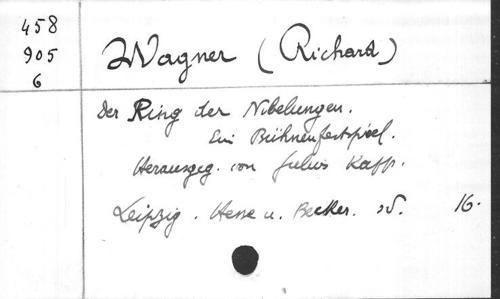 458
905
6
Wagner (Richard)
Der Ring der Nibelungen.
Ein Bühnenfestspiel.
Herausgeg. von Julius Kapp.
Leipzig. Hesse u. Becker. s.d. 16.